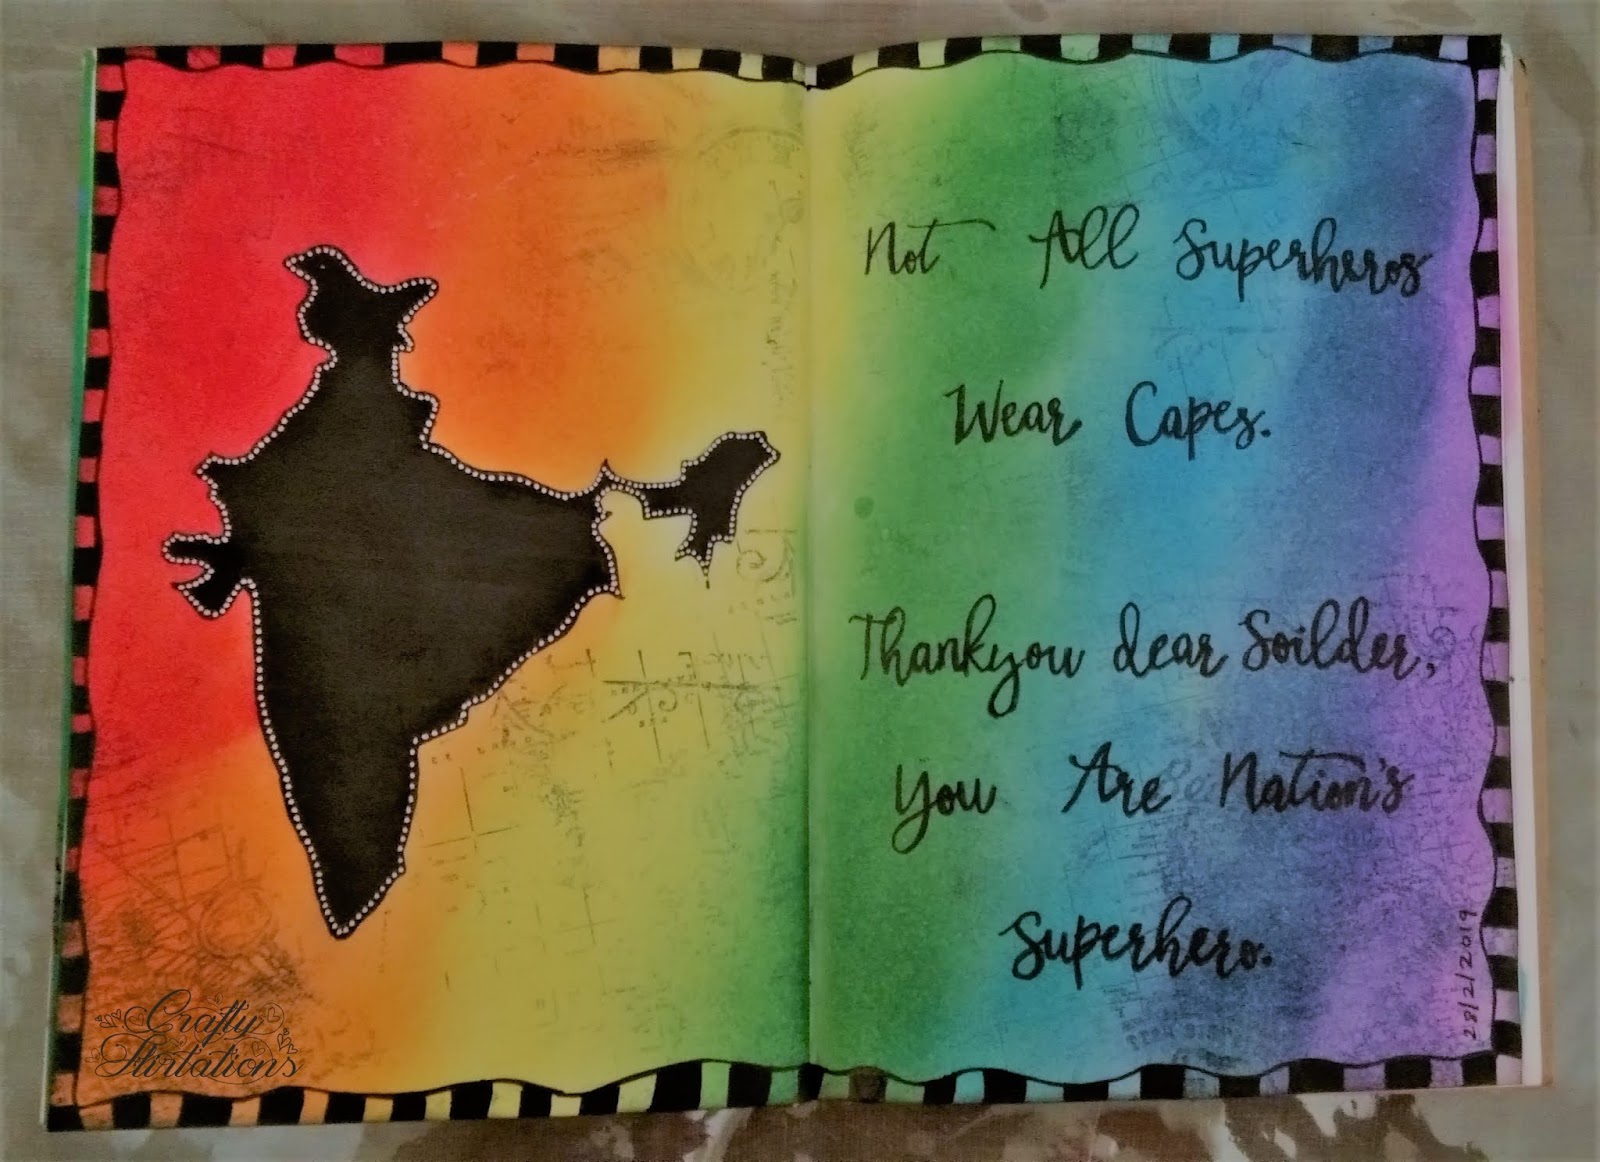 Not All Superheros
Wear Capes.
Thankyou dear Soilder,
You Are Nation's
Superhero.
28/2/2019
Crafty
flirtations